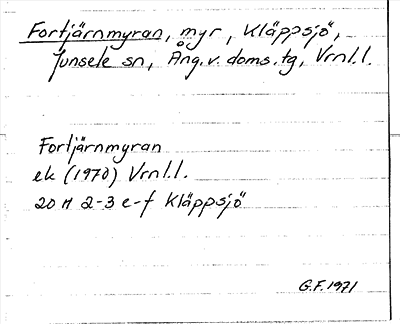 Fortjärnmyran, myr, Kläppsjö,
Junsele sn, Ång.v. doms.tg, Vrnl.l.
Fortjärnmyran
ek (1970) Vrnl.l.
20 H 2-3 e-f Kläppsjö
G.F. 1971